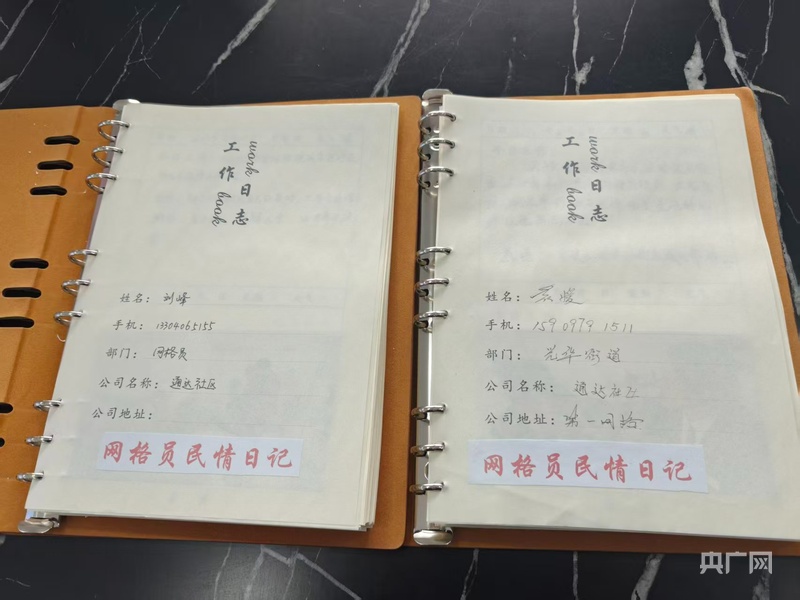 工作日志
work book
姓名: 刘峰
手机: 13304065155
部门: 网格员
公司名称: 通达社区
公司地址:
网格员民情日记
工作日志
work book
姓名:
手机: 159 0979 1511
部门: 光华街道
公司名称: 通达社区
公司地址: 第一网格
网格员民情日记
央广网